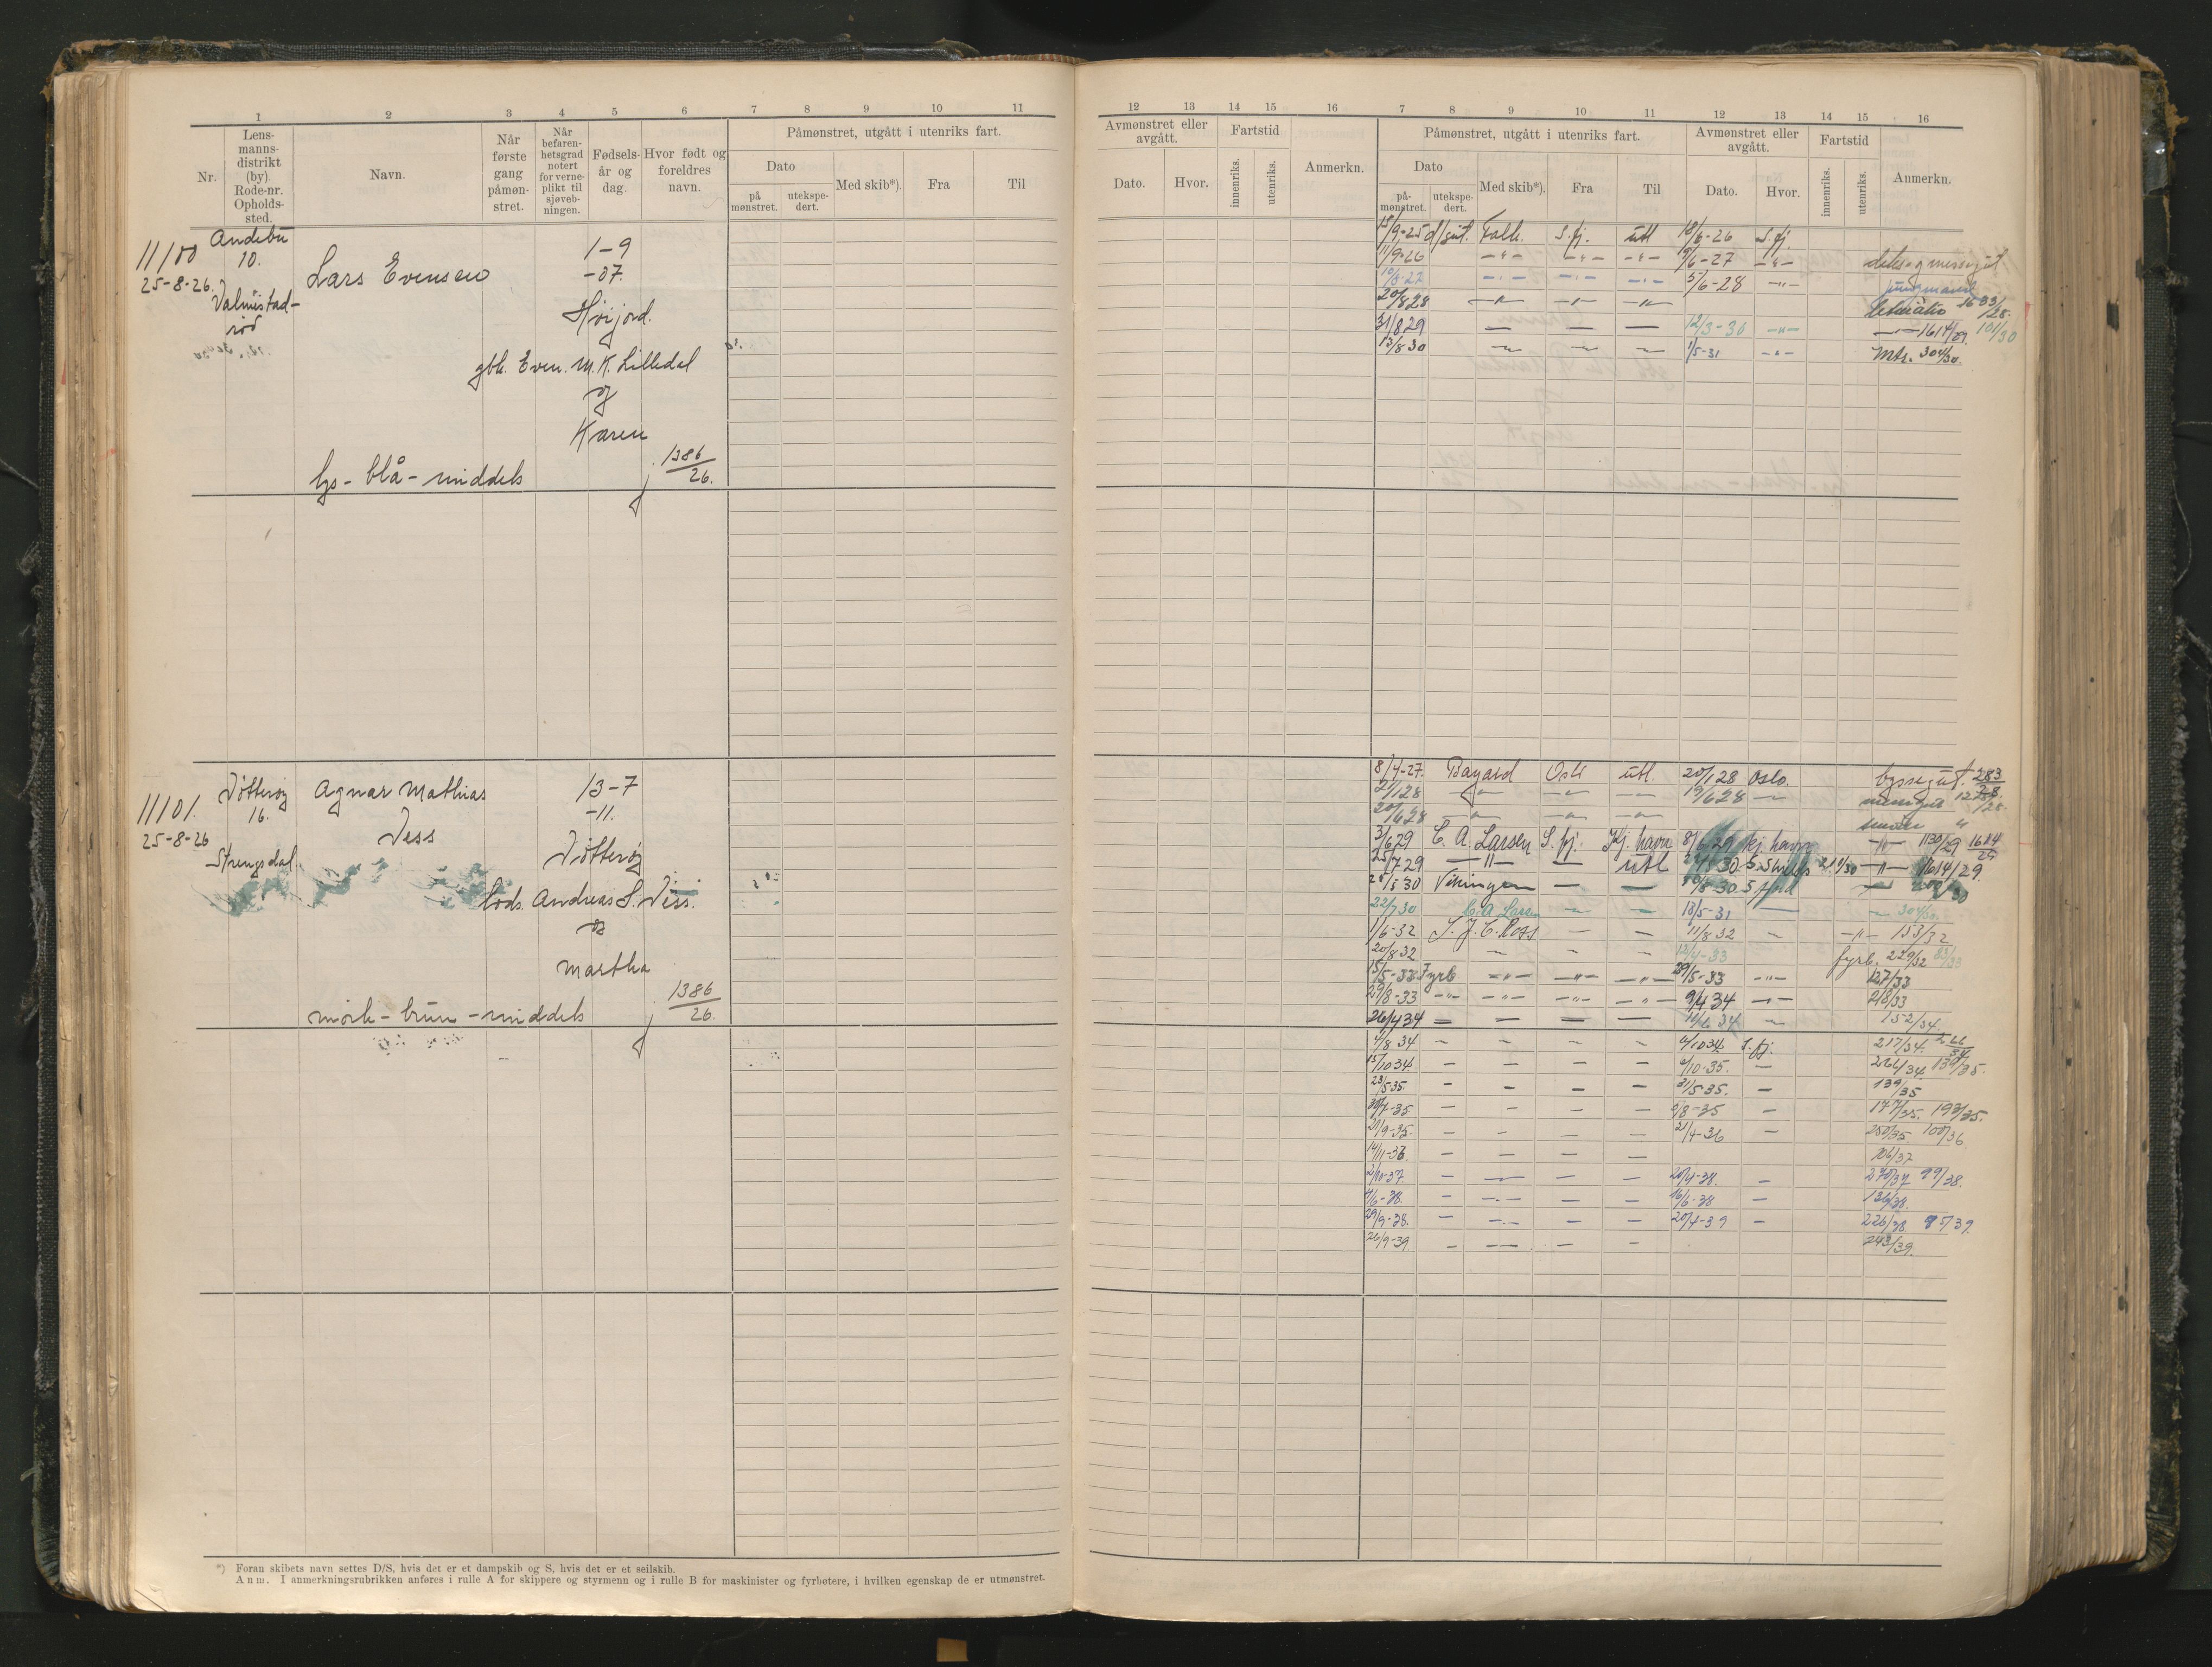 1 2 3 4 5 6 7 8 9 10 11
Nr.
Lens-
manns-
distrikt
(by).
Rode-nr.
Opholds-
sted.
Navn.
Når
første
gang
påmøn-
stret.
Når
befaren-
hetsgrad
notert
for verne-
plikt til
sjøveb-
ningen.
Fødsels-
år og
dag.
Hvor født og
foreldres
navn.
Påmønstret, utgått i utenriks fart.
Dato
på
mønstret.
utekspe-
dert.
Med skib*).
Fra
Til
11100
25-8-26.
Andebu
10.
Valmestad-
rød
Lars Evensen
1-9
-07.
Høijord.
gbr. Even. M. K. Lilledal
og
Karen
lys - blå - middels
1386/26.
11101.
25-8-26
Nøtterøy
16.
Strengsdal
Agnar Mathias
Vess
13-7
-11.
Nøtterøy
lods. Andreas S. Vess.
og
Martha
mørk - brun - middels
1386/26.
*) Foran skibets navn settes D/S, hvis det er et dampskib og S, hvis det er et seilskib.
Anm. I anmerkningsrubrikken anføres i rulle A for skippere og styrmenn og i rulle B for maskinister og fyrbøtere, i hvilken egenskap de er utmønstret.
12 13 14 15 16 7 8 9 10 11 12 13 14 15 16
Avmønstret eller
avgått.
Dato.
Hvor.
Fartstid
innenriks.
utenriks.
Anmerkn.
Påmønstret, utgått i utenriks fart.
Dato
på-
mønstret.
utekspe-
dert.
Med skib*).
Fra
Til
Avmønstret eller
avgått.
Dato.
Hvor.
Fartstid
innenriks.
utenriks.
Anmerkn.
15/9-25 d/gut. Falk. S.fj. utl 18/6-26 S.fj.
11/9-26 -"- -"- -"- 9/6-27 -"- deks og messegut
10/8-27 -"- -"- -"- 5/6-28 -"- jungmann
20/8 28 -"- -"- -"- 1633/28.
31/8 29 — — — 12/3-30 -"- -"- 1614/29. 101/30
13/8 30 — — — 1/5-31 -"- Mtr. 304/30.
8/4-27. Bayard Oslo utl. 20/1 28 Oslo. byssegut. 283/28.
21/1 28 -"- -"- — 19/6 28 — messegut
20/6 28 -"- -"- —
3/6 29 C. A. Larsen S.fj. Kj. havn 8/6 29 Kj. havn -"- 1130/29 1614/29
25/7 29 -"- — utl -"- 1614/29.
28/5 30 Vikingen — —
22/7 30 C. A. Larsen — — 13/5-31 — — 304/30.
1/6-32 S. J. C. Ross — — 11/8 32 — -"- 153/32
20/8 32 — — — 12/4-33 fyrb. 229/32 83/33
15/5-33 Fyrb -"- -"- -"- 29/5-33 -"- 127/33
29/8-33 -"- -"- -"- -"- 9/4 34 -"- 218/33
26/4 34 — — — — 10/6 34 — 152/34.
4/8 34 — — — — 4/10 34 S.fj. 217/34. 266/34
15/10 34. — — — — 2/10-35. — 266/34 139/35.
23/5 35. — — — — 31/5-35. — 139/35
30/7-35 — — — — 2/8-35 — 177/35. 193/35.
21/9-35. — — — — 21/4-36 — 250/35. 100/36
14/11-36. — — — — 106/37
2/10-37. — — — — 20/4-38. — 270/37 99/38.
4/6-38. — — — — 16/6-38 — 136/38.
29/9-38. — — — — 20/4-39 — 226/38 95/39.
26/9-39. — — — — 243/39.